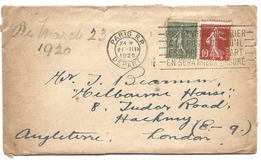 March 23
1920
PARIS R.P.
DEPART
1920
10
EN SERA
Mr. J. Bearman
"Melbourne House"
8, Tudor Road,
Hackney (E-9.)
Angleterre. London.